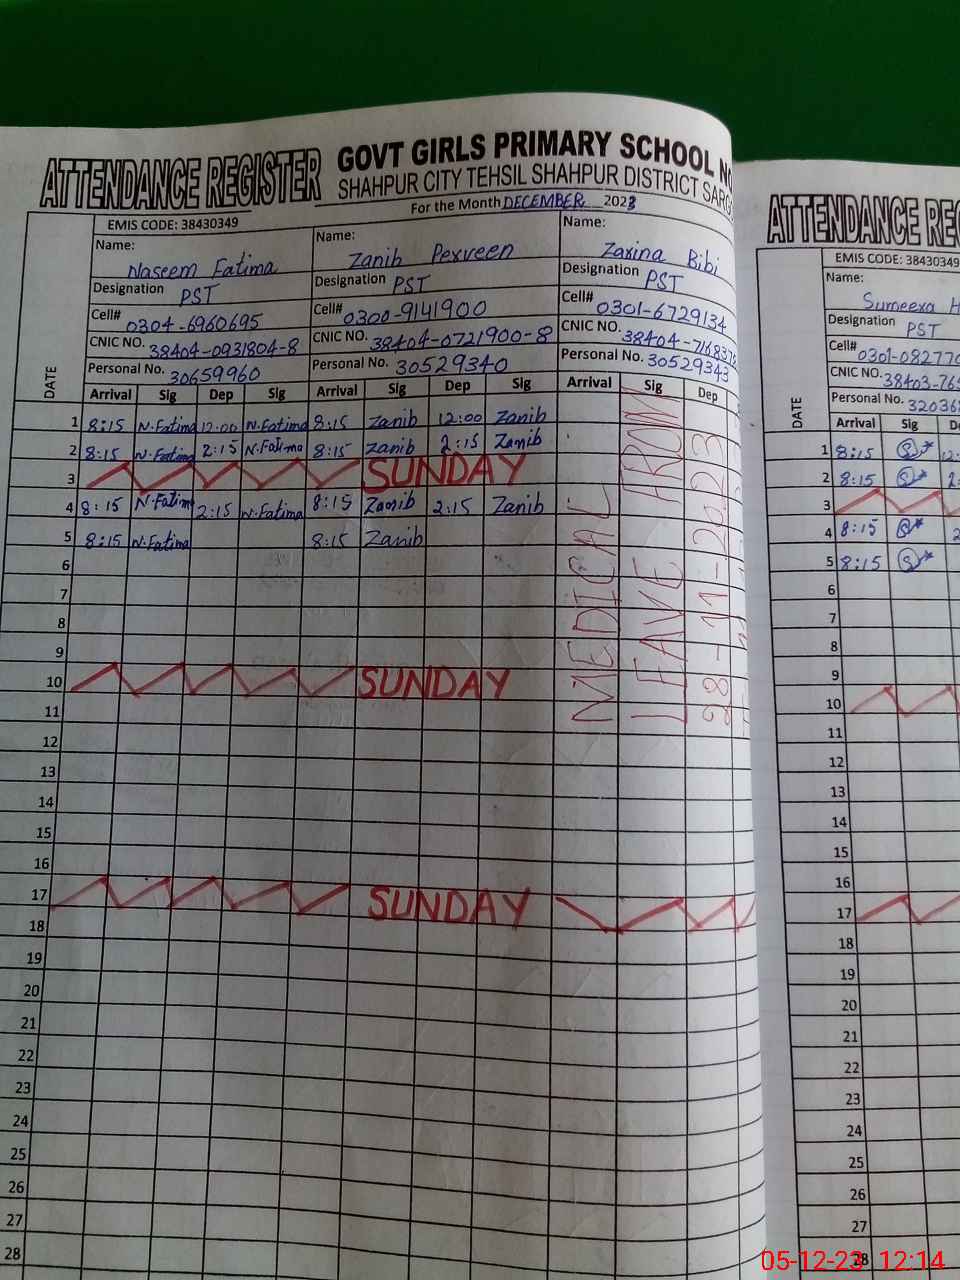 ATTENDANCE REGISTER GOVT GIRLS PRIMARY SCHOOL
SHAHPUR CITY TEHSIL SHAHPUR DISTRICT
For the Month DECEMBER 2023
EMIS CODE: 38430349
Name: Naseem Fatima Name: Zanib Perveen Name: Zarina Bibi
Designation PST Designation PST Designation PST
Cell# 0304-6960695 Cell# 0300-9141900 Cell# 0301-6729134
CNIC NO. 38404-0931804-8 CNIC NO. 38404-0721900-8 CNIC NO.
Personal No. 30659960 Personal No. 30529340 Personal No. 30529343
DATE Arrival Sig Dep Sig Arrival Sig Dep Sig Arrival Sig Dep
1 8:15 N.Fatima 12:00 N.Fatima 8:15 Zanib 12:00 Zanib
2 8:15 N.Fatima 2:15 N.Fatima 8:15 Zanib 2:15 Zanib
3 SUNDAY
4 8:15 N.Fatima 2:15 N.Fatima 8:15 Zanib 2:15 Zanib
5 8:15 N.Fatima 8:15 Zanib
6
7
8
9
10 SUNDAY
11
12
13
14
15
16
17 SUNDAY
18
19
20
21
22
23
24
25
26
27
28
MEDICAL
LEAVE FROM
28-11-2023
ATTENDANCE
EMIS CODE: 38430349
Name: Sumeera
Designation PST
Cell#
CNIC NO.
Personal No.
DATE Arrival Sig
1 8:15
2 8:15
3
4 8:15
5 8:15
6
7
8
9
10
11
12
13
14
15
16
17
18
19
20
21
22
23
24
25
26
27
28
05-12-23 12:14